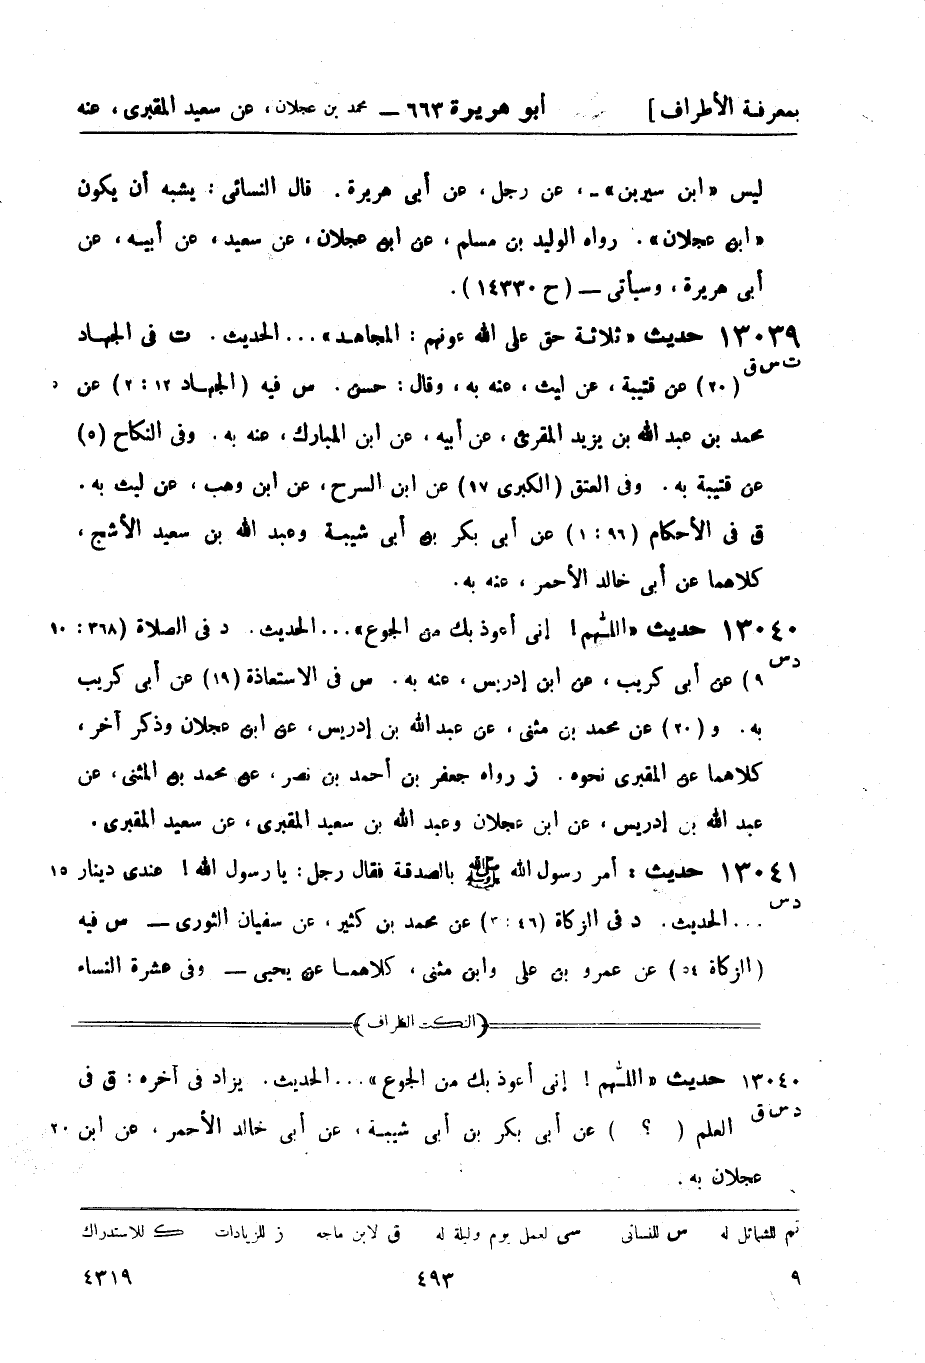 بمعرفة الأطراف] أبو هريرة ٦٦٣ — محمد بن عجلان، عن سعيد المقبرى، عنه
ليس «ابن سيرين» -، عن رجل، عن أبى هريرة. قال النسائى: يشبه أن يكون
«ابن عجلان». رواه الوليد بن مسلم، عن ابن عجلان، عن سعيد، عن أبيه، عن
أبى هريرة، وسيأتى — (ح ١٤٣٣٠).
١٣٠٣٩ حديث «ثلاثة حق على الله عونهم: المجاهد»... الحديث. ت فى الجهاد
ت س ق
(٢٠) عن قتيبة، عن ليث، عنه به، وقال: حسن. س فيه (الجهاد ١٢: ٢) عن ٥
محمد بن عبد الله بن يزيد المقرئ، عن أبيه، عن ابن المبارك، عنه به. وفى النكاح (٥)
عن قتيبة به. وفى العتق (الكبرى ١٧) عن ابن السرح، عن ابن وهب، عن ليث به.
ق فى الأحكام (٩٦: ١) عن أبى بكر بن أبى شيبة وعبد الله بن سعيد الأشج،
كلاهما عن أبى خالد الأحمر، عنه به.
١٣٠٤٠ حديث «اللّٰهم! إنى أعوذ بك من الجوع»... الحديث. د فى الصلاة (٣٦٨: ١٠
د س
٩) عن أبى كريب، عن ابن إدريس، عنه به. س فى الاستعاذة (١٩) عن أبى كريب
به. و (٢٠) عن محمد بن مثنى، عن عبد الله بن إدريس، عن ابن عجلان وذكر آخر،
كلاهما عن المقبرى نحوه. ز رواه جعفر بن أحمد بن نصر، عن محمد بن المثنى، عن
عبد الله بن إدريس، عن ابن عجلان وعبد الله بن سعيد المقبرى، عن سعيد المقبرى.
١٣٠٤١ حديث: أمر رسول الله ﷺ بالصدقة فقال رجل: يا رسول الله! عندى دينار ١٥
د س
... الحديث. د فى الزكاة (٤٦: ٣) عن محمد بن كثير، عن سفيان الثورى — س فيه
(الزكاة ٥٤) عن عمرو بن على وابن مثنى، كلاهما عن يحيى — وفى عشرة النساء
(النكت الظراف)
١٣٠٤٠ حديث «اللّٰهم! إنى أعوذ بك من الجوع»... الحديث. يزاد فى آخره: ق فى
د س ق
العلم ( ؟ ) عن أبى بكر بن أبى شيبة، عن أبى خالد الأحمر، عن ابن ٢٠
عجلان به.
تم للشمائل له س للنسائى سى لعمل يوم وليلة له ق لابن ماجه ز للزيادات ك للاستدراك
٩ ٤٩٣ ٤٣١٩